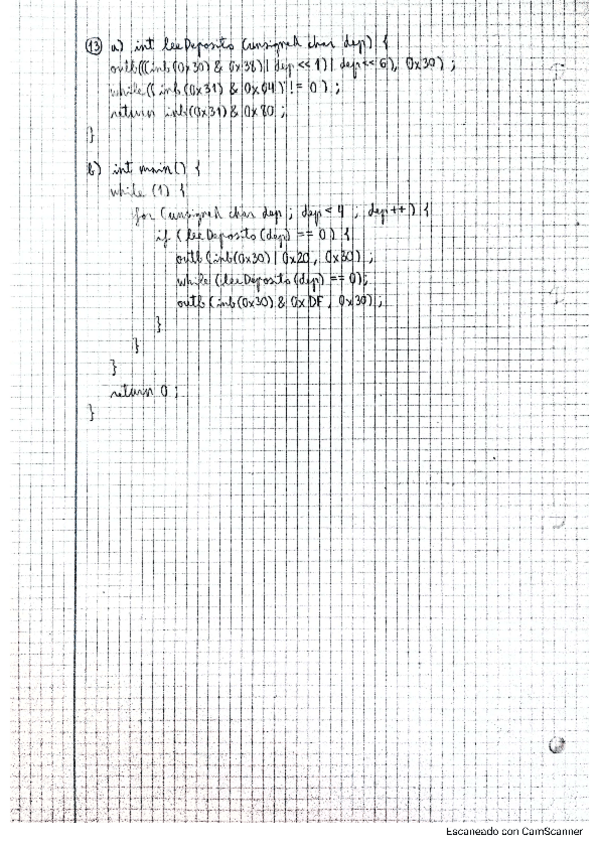 13) a) int leeDeposito (unsigned char dep) {
outb(((inb(0x30) & 0x38) | dep << 1) | dep << 6), 0x30) ;
while (( inb (0x31) & 0x04) != 0 ) ;
return inb(0x31) & 0x80 ;
}
b) int main() {
while (1) {
for (unsigned char dep ; dep < 4 ; dep++) {
if (leeDeposito(dep) == 0) {
outb (inb(0x30) | 0x20, 0x30) ;
while (leeDeposito(dep) == 0);
outb (inb(0x30) & 0xDF, 0x30) ;
}
}
}
return 0 ;
}
Escaneado con CamScanner